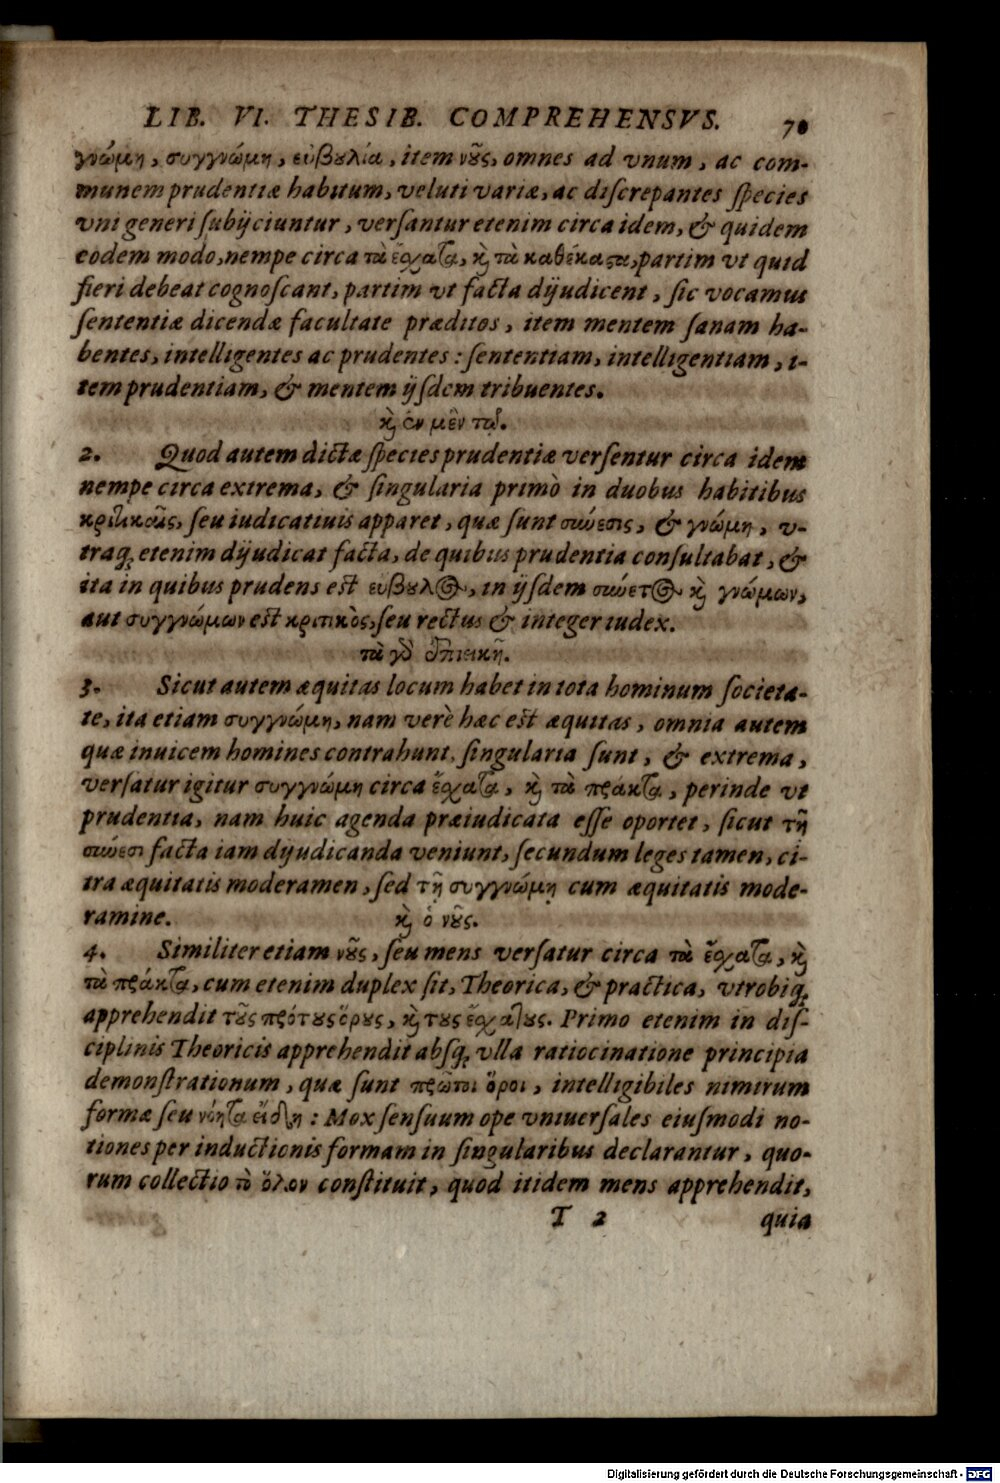 LIB. VI. THESIB. COMPREHENSVS. 70
γνώμη, συγγνώμη, εὐβȣλία, item νȣ̃ς, omnes ad vnum, ac com-
munem prudentiæ habitum, veluti variæ, ac diſcrepantes ſpecies
vni generi ſubijciuntur, verſantur etenim circa idem, & quidem
eodem modo, nempe circa τὰ ἔχαϯα, ϗ τὰ καθέκαϛα, partim vt quid
fieri debeat cognoſcant, partim vt facta dijudicent, ſic vocamus
ſententiæ dicendæ facultate præditos, item mentem ſanam ha-
bentes, intelligentes ac prudentes: ſententiam, intelligentiam, i-
tem prudentiam, & mentem ijſdem tribuentes.
ϗ ἐν μὲν τῳ̃.
2. Quod autem dictæ ſpecies prudentiæ verſentur circa idem
nempe circa extrema, & ſingularia primò in duobus habitibus
κριτικοῖς, ſeu iudicatiuis apparet, quæ ſunt σύνεσις, & γνώμη, v-
traq; etenim dijudicat facta, de quibus prudentia conſultabat, &
ita in quibus prudens eſt εὐβȣλος, in ijſdem σύνετος ϗ γνώμων,
aut συγγνώμων eſt κριτικὸς, ſeu rectus & integer iudex.
τὰ γδ̀ ἐπιεικῆ.
3. Sicut autem æquitas locum habet in tota hominum ſocieta-
te, ita etiam συγγνώμη, nam verè hæc eſt æquitas, omnia autem
quæ inuicem homines contrahunt, ſingularia ſunt, & extrema,
verſatur igitur συγγνώμη circa ἔχατα, ϗ τὰ πράκτα, perinde vt
prudentia, nam huic agenda præiudicata eſſe oportet, ſicut τῆ
σύνεσι facta iam dijudicanda veniunt, ſecundum leges tamen, ci-
tra æquitatis moderamen, ſed τῆ συγγνώμῃ cum æquitatis mode-
ramine. ϗ ὁ νȣ̃ς.
4. Similiter etiam νȣ̃ς, ſeu mens verſatur circa τὰ ἔχατα, ϗ
τὰ πράκτα, cum etenim duplex ſit, Theorica, & practica, vtrobiq;
apprehendit τȣ̀ς πρότȣς ὅρȣς, ϗ τȣς ἔχατȣς. Primo etenim in diſ-
ciplinis Theoricis apprehendit abſq; vlla ratiocinatione principia
demonſtrationum, quæ ſunt πρῶτοι ὅροι, intelligibiles nimirum
formæ ſeu νόητα εἴδη: Mox ſenſuum ope vniuerſales eiuſmodi no-
tiones per inductionis formam in ſingularibus declarantur, quo-
rum collectio τὸ ὅλον conſtituit, quod itidem mens apprehendit,
T 2 quia
Digitalisierung gefördert durch die Deutsche Forschungsgemeinschaft - DFG